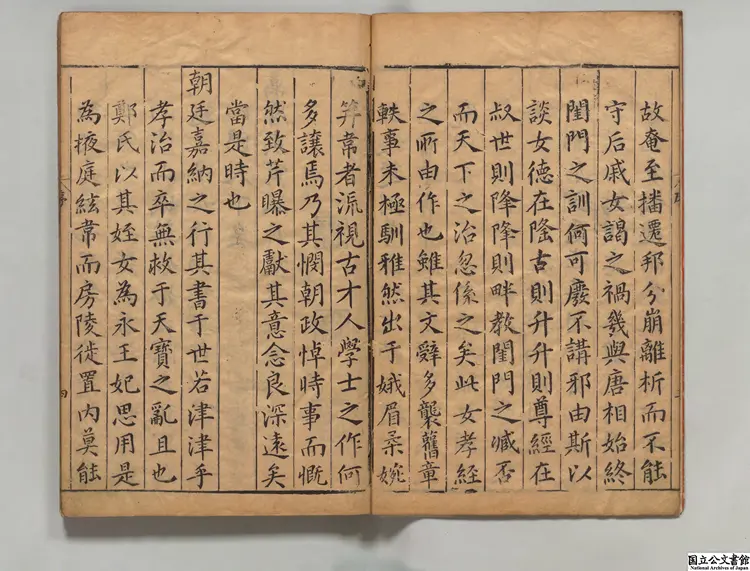 故奄至播遷邦分崩離析而不能
守后戚女謁之禍幾與唐相始終
閨門之訓何可廢不講邪由斯以
談女德在隆古則升升則尊經在
叔世則降降則畔教閨門之臧否
而天下之治忽係之矣此女孝經
之所由作也雖其文辭多襲舊章
軼事未極馴雅然出于娥眉柔婉
笄帚者流視古才人學士之作何
多讓焉乃其憫朝政悼時事而慨
然致芹曝之獻其意念良深遠矣
當是時也
朝廷嘉納之行其書于世若津津乎
孝治而卒無救于天寶之亂且也
鄭氏以其姪女為永王妃思用是
為掖庭絃常而房陵徙置內莫能
序
四
国立公文書館
National Archives of Japan